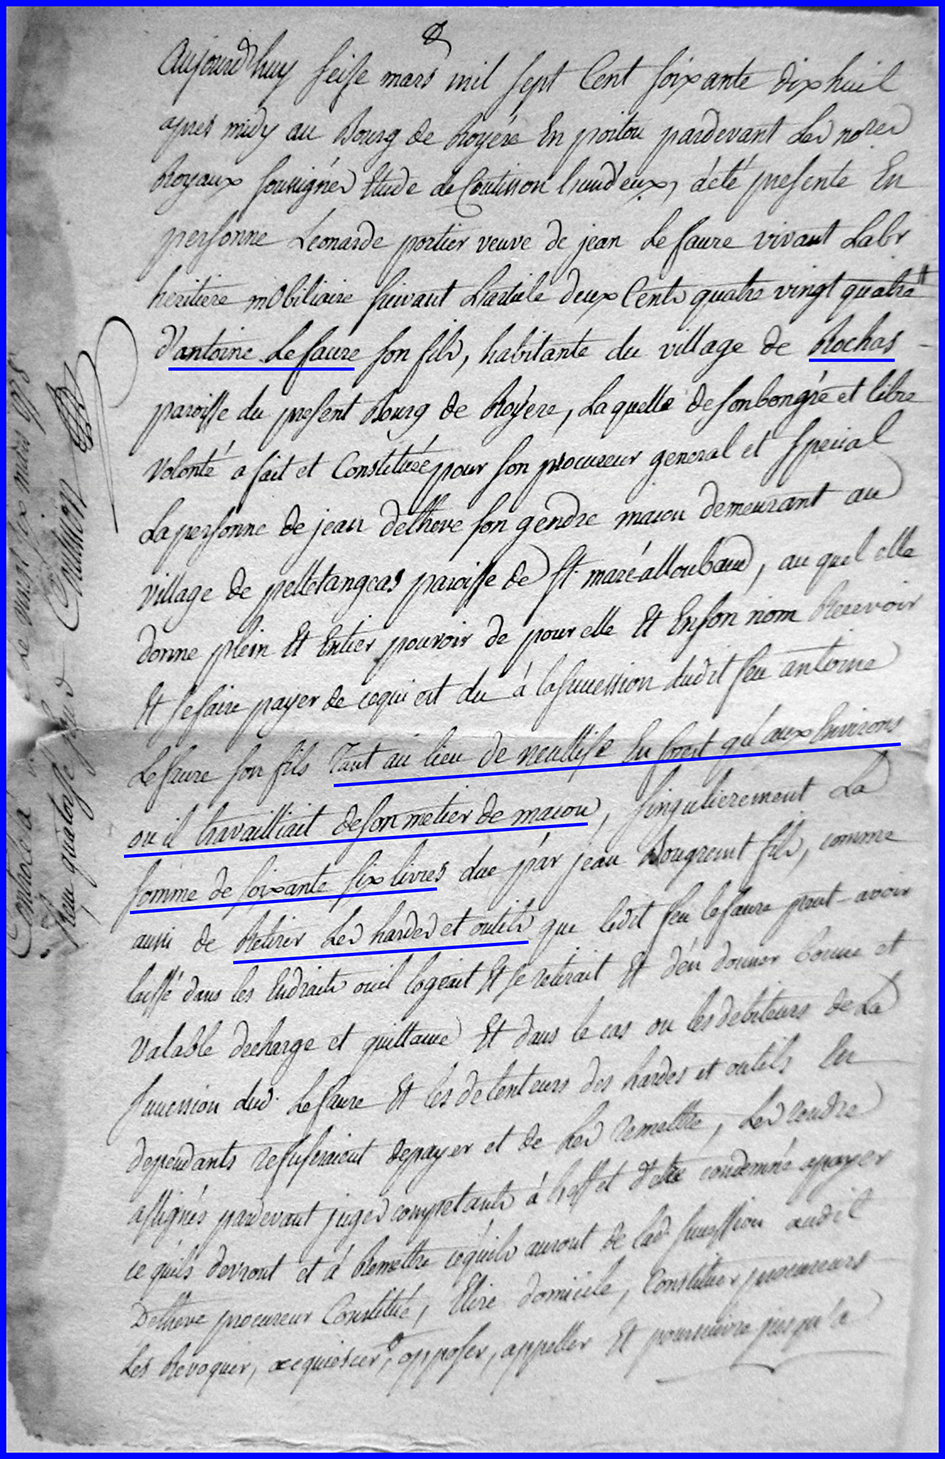 Aujourd'huy seise mars mil sept Cent soixante dix huit
apres midy au Bourg de Royére En poitou pardevant Les no.res
Royaux soussignés Etude de Coutisson l'un d'eux, a été presente En
personne Léonarde portier veuve de jean Lefaure vivant Labr
heritiere mobiliaire suivant L'article deux Cents quatre vingt quatre
d'antoine Lefaure son fils, habitante du village de Rochas
paroisse du present Bourg de Royere, Laquelle de son bongré et libre
volonté a fait et Constitué pour son procureur general et special
La personne de jean delhove son gendre macon demeurant au
village de pelletangeas paroisse de St maré, auquel elle
donne plein Et Entier pouvoir de pour elle Et En son nom Recevoir
Et se faire payer de cequi est du à la succession dudit feu antoine
Lefaure son fils Tant au lieu de neullise En forest qu'aux Environs
ou il travailliait de son metier de macon, singulierement La
somme de soixante six livres due par jean fils, comme
aussi de Retirer Les hardes et outils que ledit feu lefaure peut-avoir
laissé dans les Endroits ou il logeait Et se retirait Et d'en donner bonne et
valable decharge et quittance Et dans le cas ou les debiteurs de La
succession dud. Lefaure Et les detenteurs des hardes et outils En
dependants refuseraient depayer et de Les remettre, Les rendre
assignés pardevant juges competants à l'effet d'etre condemné apayer
ce quils devront et à Remettre cequils auront de lad. succession audit
Delhove procureur Constitué, Elire domicile, Constituer procureurs
Les Revoquer, acquiescer, opposer, appeller Et poursuivre jusqu'a
Controlé à Le vingt six mars 1778
Reçu quatorze sols